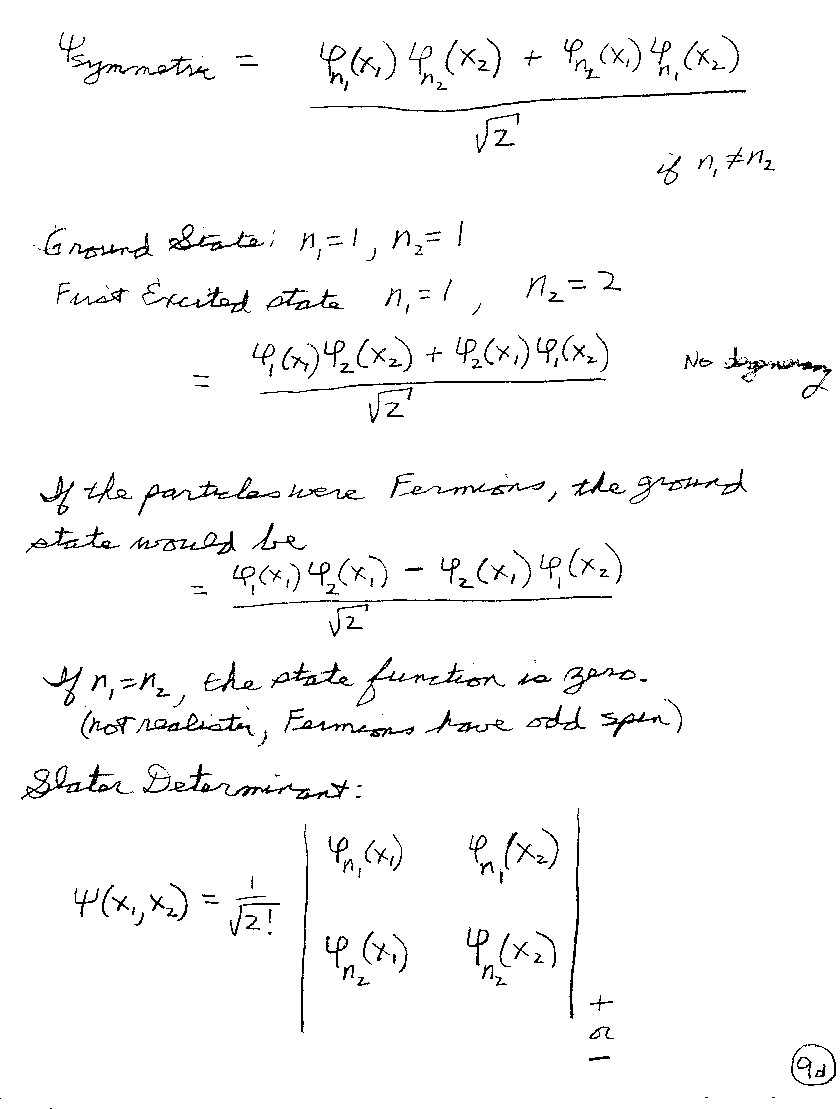 ψsymmetric = φn₁(x₁) φn₂(x₂) + φn₂(x₁) φn₁(x₂)
√2
if n₁ ≠ n₂
Ground State: n₁=1, n₂=1
First Excited state n₁=1, n₂=2
= φ₁(x₁)φ₂(x₂) + φ₂(x₁)φ₁(x₂) No degeneracy
√2
If the particles were Fermions, the ground
state would be
= φ₁(x₁)φ₂(x₁) − φ₂(x₁)φ₁(x₂)
√2
If n₁=n₂, the state function is zero.
(not realistic, Fermions have odd spin)
Slater Determinant:
φn₁(x₁) φn₁(x₂)
ψ(x₁,x₂) = 1/√2!
φn₂(x₁) φn₂(x₂)
+
or
−
9d